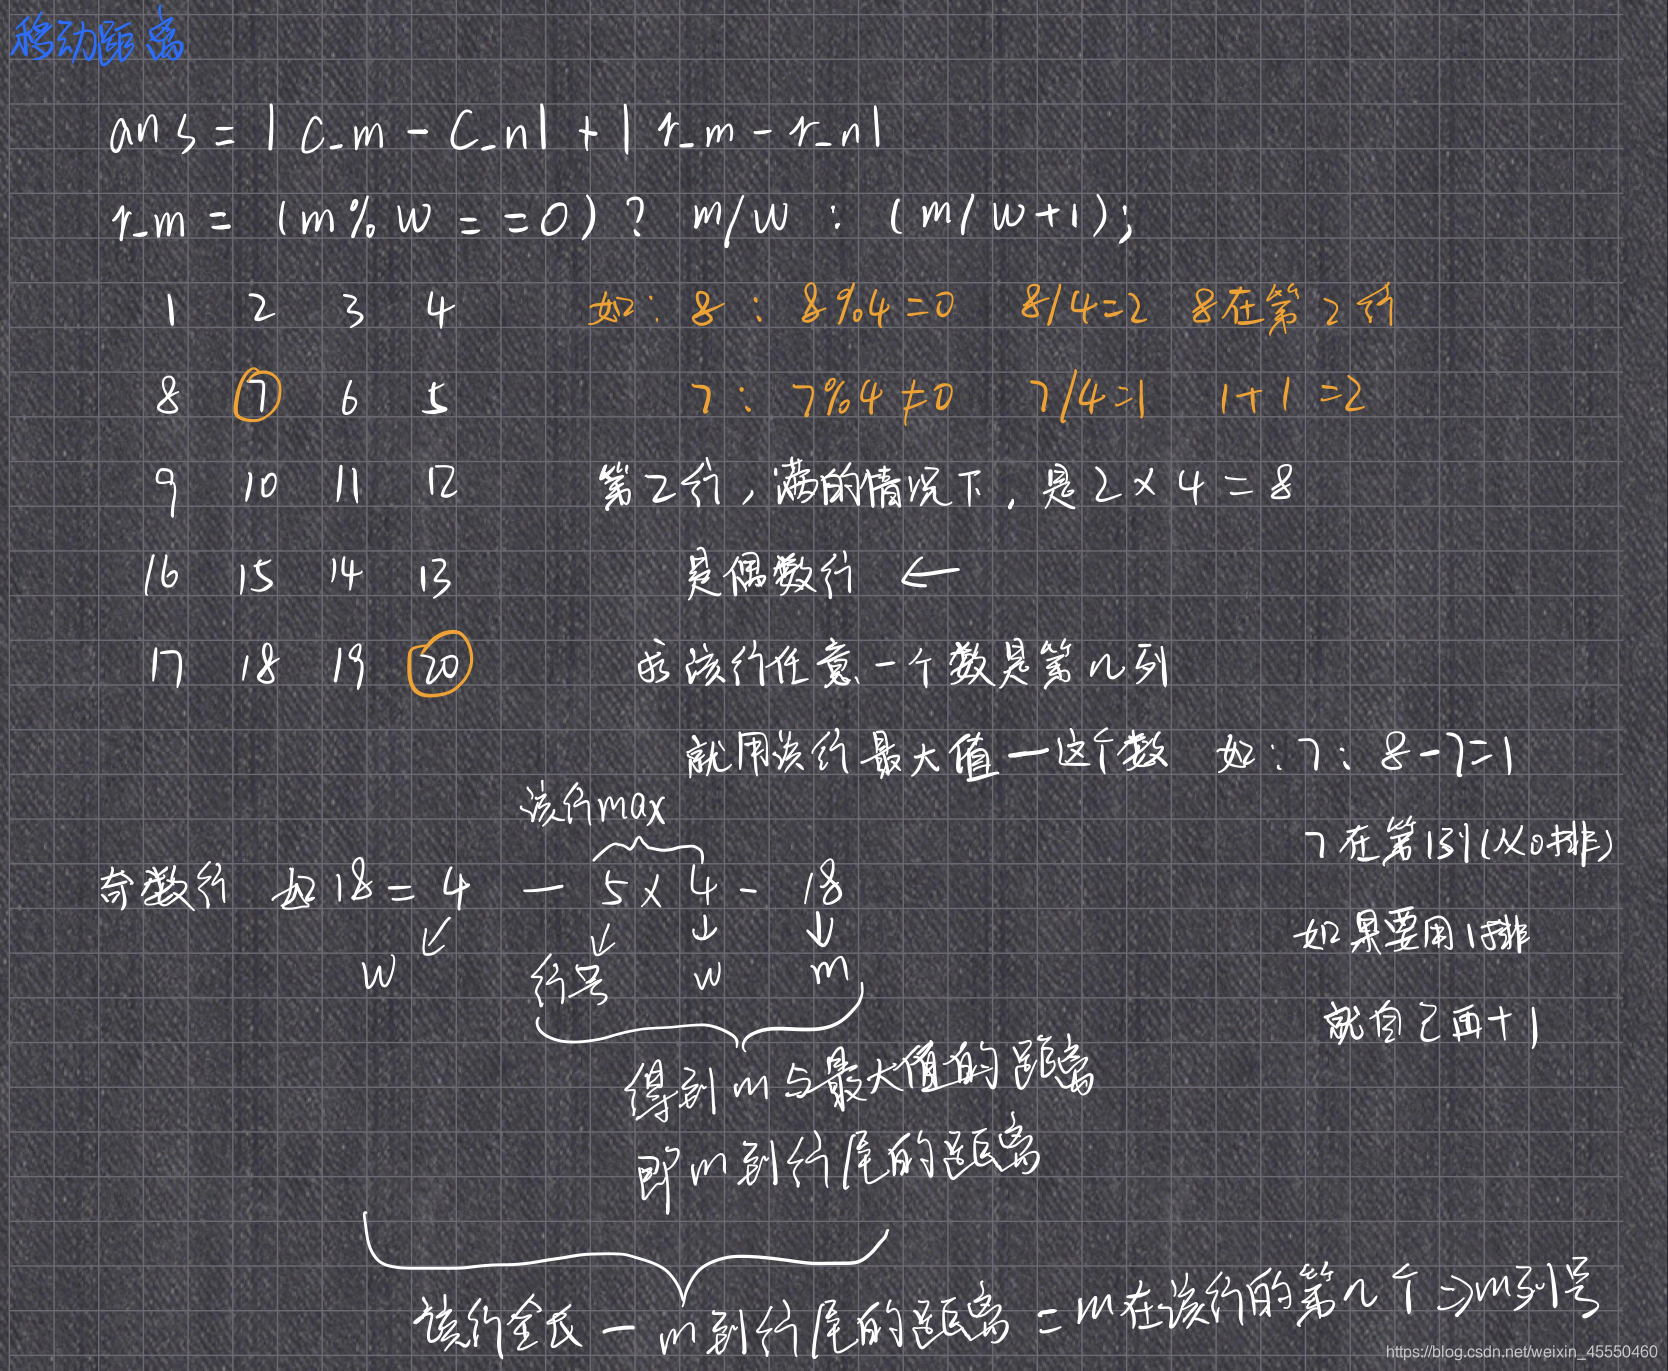 移动距离
ans = |c_m - c_n| + |r_m - r_n|
r_m = (m%w==0)? m/w : (m/w+1);
1 2 3 4 如: 8: 8%4=0 8/4=2 8在第2行
8 7 6 5 7: 7%4≠0 7/4=1 1+1=2
9 10 11 12 第2行,满的情况下,是2×4=8
16 15 14 13 是偶数行 ←
17 18 19 20 求该行任意一个数是第几列
就用该行最大值一这个数 如:7: 8-7=1
该行max
7在第1列(从0排)
奇数行 如18=4 — 5×4 - 18
如果要用1排
w 行号 w m
就自己再+1
得到m与最大值的距离
即m到行尾的距离
该行全长 — m到行尾的距离 = m在该行的第几个 ⇒ m列号
https://blog.csdn.net/weixin_45550460